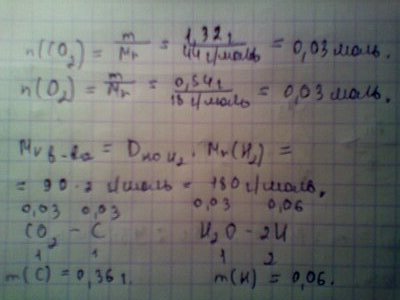 n(CO₂) = m/Mr = 1,32 г/44 г/моль = 0,03 моль.
n(O₂) = m/Mr = 0,54 г/18 г/моль = 0,03 моль.
Mr в-ва = D по H₂ · Mr(H₂) =
= 90 · 2 г/моль = 180 г/моль.
0,03 0,03 0,03 0,06
CO₂ – C H₂O – 2H
1 1 1 2
m(C) = 0,36 г. m(H) = 0,06.